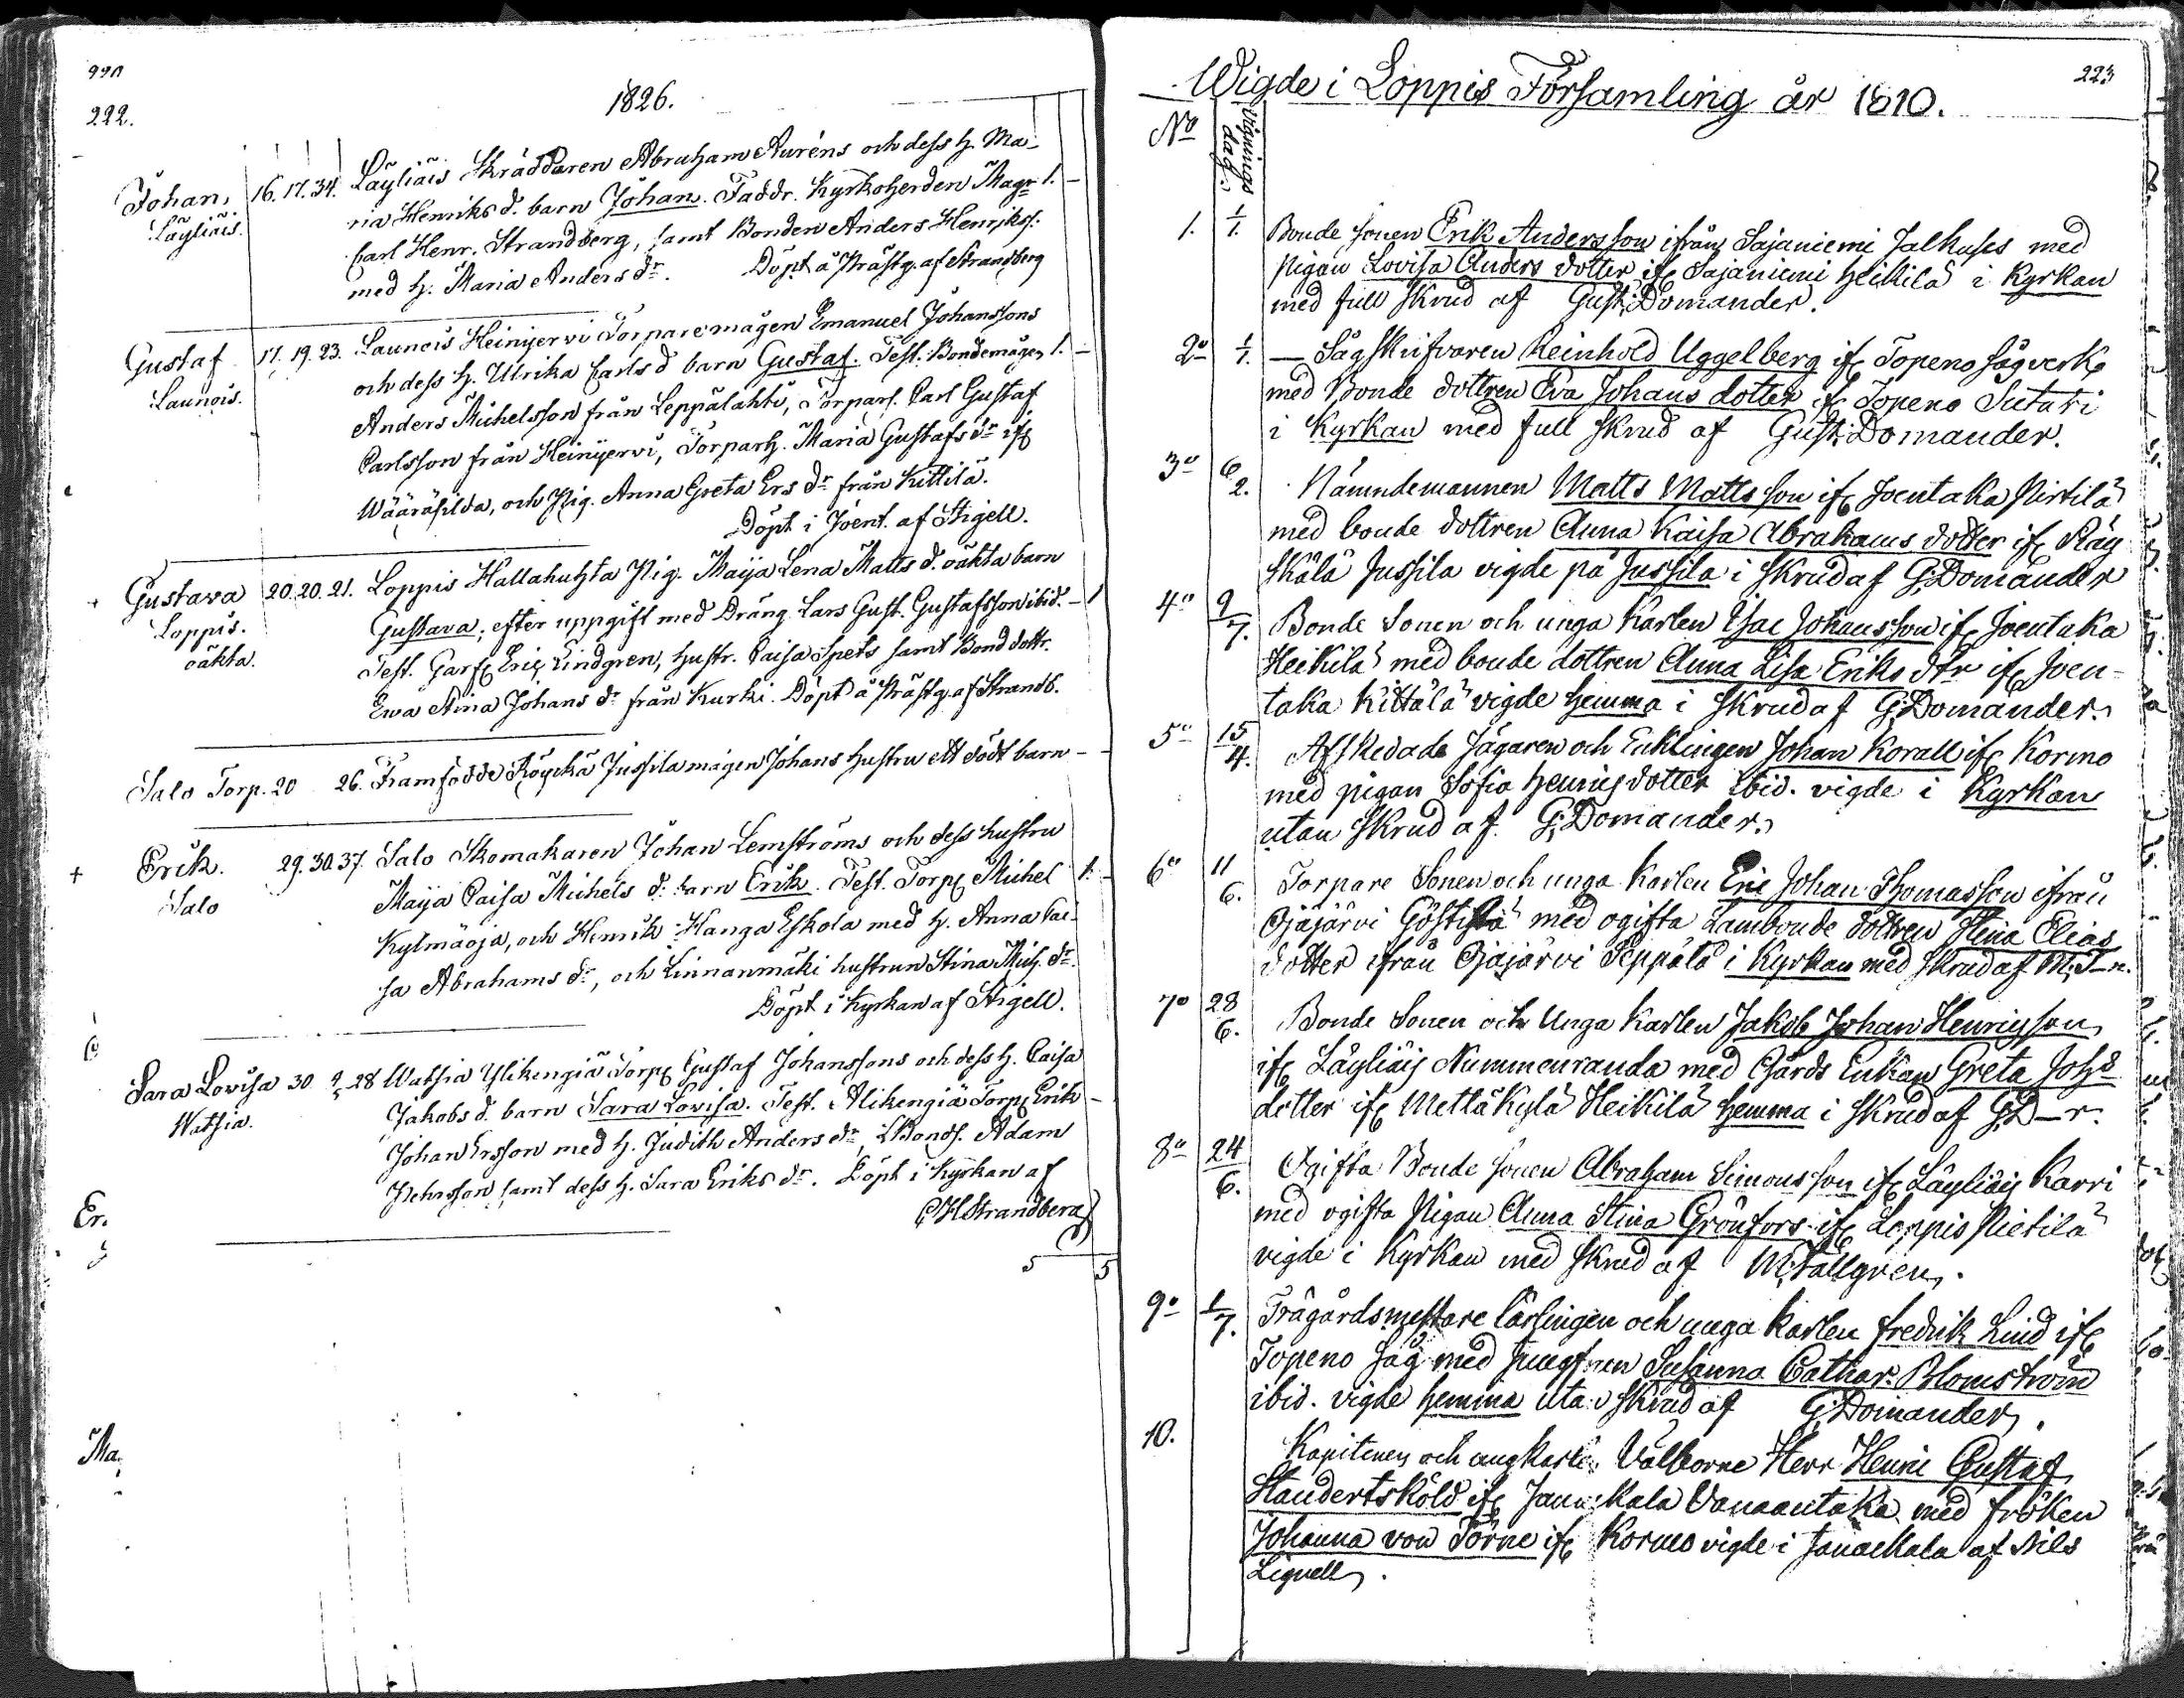 222.
1826.
Johan.
Läyliäis.
16. 17. 34.
Läyliäis Skräddaren Abraham Auréns och dess h. Ma-
ria Henriks d. barn Johan. Faddr. Kyrkoherden Mag:r 1.
Carl Henr. Strandberg, samt Bonden Anders Henrikss.
med h. Maria Anders d:r. Döpt å Prästg. af Strandberg
Gustaf
Launois.
17. 19. 23.
Launois Heinijervi Torparemågen Emanuel Johanssons
och dess h. Ulrika Carls d barn Gustaf. Test. Bondemågen 1.
Anders Michelsson från Leppälahti, Torpars. Carl Gustaf
Carlsson från Heinijervi, Torparh. Maria Gustafs d:r ifr
och Pig. Anna Greta Ers d:r från Kittilä.
Döpt i Joent. af Stigell.
Gustava
Loppis.
oäkta.
20. 20. 21.
Loppis Hallahuhta Pig. Maija Lena Matts d. oäkta barn
Gustava; efter uppgift med Dräng Lars Gust. Gustafsson ibid. - 1
Test. Garfv. Eric Lindgren, hustr. Caisa Spets samt Bond dottr.
Ewa Stina Johans d:r från Kurki. Döpt å Prästg. af Strandb.
Salo Torp. 20 26. Framfödde Röyckä Jussila mågen Johans hustru ett dödt barn -
Erik.
Salo
29. 30. 37.
Salo Skomakaren Johan Lemströms och dess hustru
Maija Caisa Michels d. barn Erik. Test. Torp. Michel 1.
Kylmäoja, och Henrik Hanga Eskola med h. Anna Cai-
sa Abrahams d:r, och Linnanmäki hustrun Stina Mich. d:r.
Döpt i Kyrkan af Stigell.
Sara Lovisa
Watsia.
30 2/5 28
Watsia Ylikengiä Torp. Gustaf Johanssons och dess h. Caisa
Jakobs d. barn Sara Lovisa. Test. Alikengiä Torp. Erik
Johan Ersson med h. Judith Anders d:r, Bonds. Adam
Pehrsson samt dess h. Sara Eriks d:r. Döpt i Kyrkan af
CHStrandberg
5 5
Er.
Ma.
223
Wigde i Loppis Församling år 1810.
No Vignings dag:
1. 1/1. Bonde sonen Erik Andersson ifrån Sajaniemi Jalkuses med
pigan Lovisa Anders dotter ifr Sajaniemi Heikilä i Kyrkan
med full skrud af Gust. Domander.
2o 1/1. — Sågskrifvaren Reinhold Uggelberg ifr Topeno Sågverk
med Bonde dottren Eva Johans dotter ifr Topeno Sutari
i Kyrkan med full skrud af Gust. Domander.
3o 6/2. Nämndemannen Matts Mattsson ifr Joentaka Pirtilä
med bonde dottren Anna Kaisa Abrahams dotter ifr Räy
skälä Jussila vigde på Jussila i skrud af G:Domander
4o 9/7. Bonde Sonen och unga Karlen Isac Johansson ifr Joentaka
Heikilä med bonde dottren Anna Lisa Eriks dtr ifr Joen-
taka Kittälä vigde hemma i skrud af G:Domander.
5o 15/4. Afskedade Jägaren och Enklingen Johan Korall ifr Kormo
med pigan Sofia Henricsdotter ibid. vigde i Kyrkan
utan skrud af G:Domander.
6o 11/6. Torpare Sonen och unga Karlen Eric Johan Thomasson ifrån
Ojajärvi Göstilä med ogifta Lambonde dottren Stina Elias
dotter ifrån Ojajärvi Seppälä i Kyrkan med skrud af M:T-n.
7o 28/6. Bonde Sonen och Unga Karlen Jakob Johan Henricsson
ifr Läyliäis Nummenranda med Gårds Enkan Greta Johs
dotter ifr Mettäkylä Heikilä hemma i skrud af G:D-r.
8o 24/6. Ogifta Bonde sonen Abraham Simonsson ifr Läyliäis Karri
med ogifta Pigan Anna Stina Grönfors ifr Loppis Pietilä
vigde i Kyrkan med skrud af M:Tallgren.
9o 1/7. Trägårdsmästare lärlingen och unga karlen Fredrik Lind ifr
Topeno Såg med Jungfrun Susanna Cathar. Blomström
ibid. vigde hemma utan skrud af G:Domander.
10. Kapitenen och ungkarlen Välborne Herr Henric Gustaf
Standertsköld ifr Janackala Vanaantaka med fröken
Johanna von Törne ifr Kormo vigde i Janackala af Nils
Lignell.